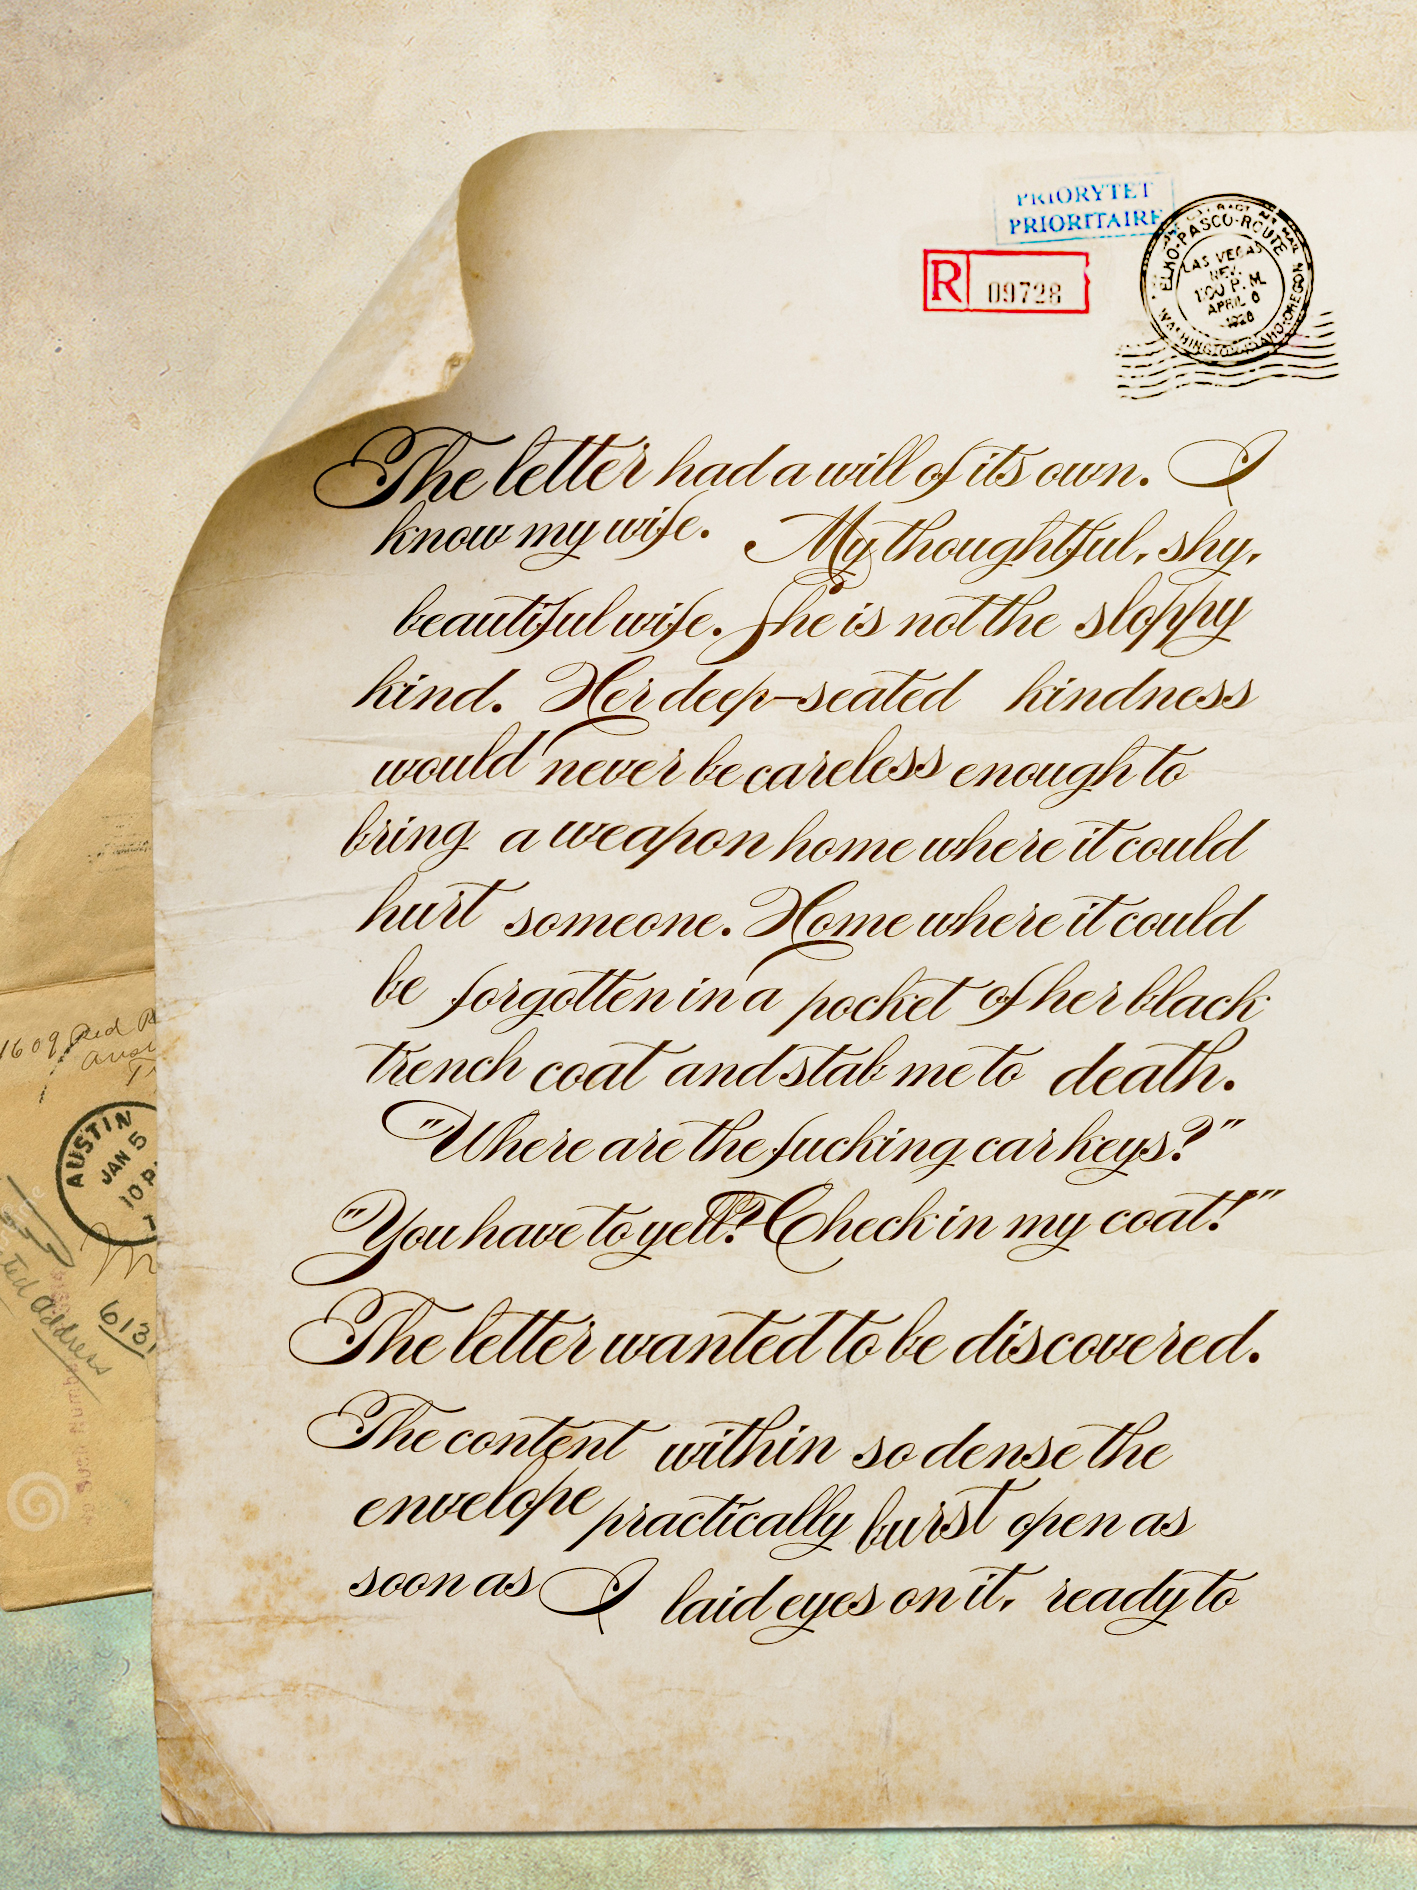 PRIORYTET
PRIORITAIRE
R 09728
ELKO-PASCO-ROUTE
LAS VEGAS
NEV.
1:00 P.M.
APRIL 6
WASHINGTON-IDAHO-OREGON
The letter had a will of its own. I
know my wife. My thoughtful, shy,
beautiful wife. She is not the sloppy
kind. Her deep-seated kindness
would never be careless enough to
bring a weapon home where it could
hurt someone. Home where it could
be forgotten in a pocket of her black
trench coat and stab me to death.
"Where are the fucking car keys?"
"You have to yell? Check in my coat!"
The letter wanted to be discovered.
The content within so dense the
envelope practically burst open as
soon as I laid eyes on it, ready to
1609
AUSTIN
JAN 5
10 P
613
address